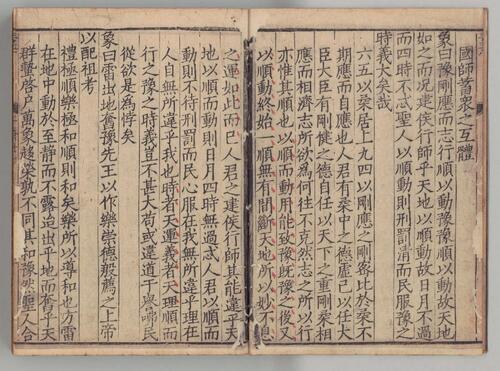 國師晋衆之互體
彖曰豫剛應而志行順以動豫豫順以動故天地
如之而况建侯行師乎天地以順動故日月不過
而四時不忒聖人以順動則刑罰清而民服豫之
時義大矣哉
六五以柔居上九四以剛應之剛密比於柔不
期應而自應也人君有柔中之德虛已以任大
臣大臣有剛健之德自任以天下之重剛柔相
應而相濟志所欲為何往不克然志之所以行
亦惟其順也以順而動用能致豫旣豫之後又
以順動終始一順無有間斷天地所以妙不息
之運如此而已人君之建侯行師其能違乎天
地以順而動則日月四時無過忒人君以順而
動則不待刑罰而民心服在我無所違乎理在
人自無所違乎我也時者天運義者天理順而
行之豫之時義豈不甚大苟或違道干譽咈民
從欲是為悖矣
象曰雷出地奮豫先王以作樂崇德殷薦之上帝
以配祖考
禮極順樂極和順則和矣樂所以導和也方雷
在地中動於至靜而不露迨出乎地而奮乎天
群蟄啓戶萬象趨榮孰不同其和豫哉聖人合